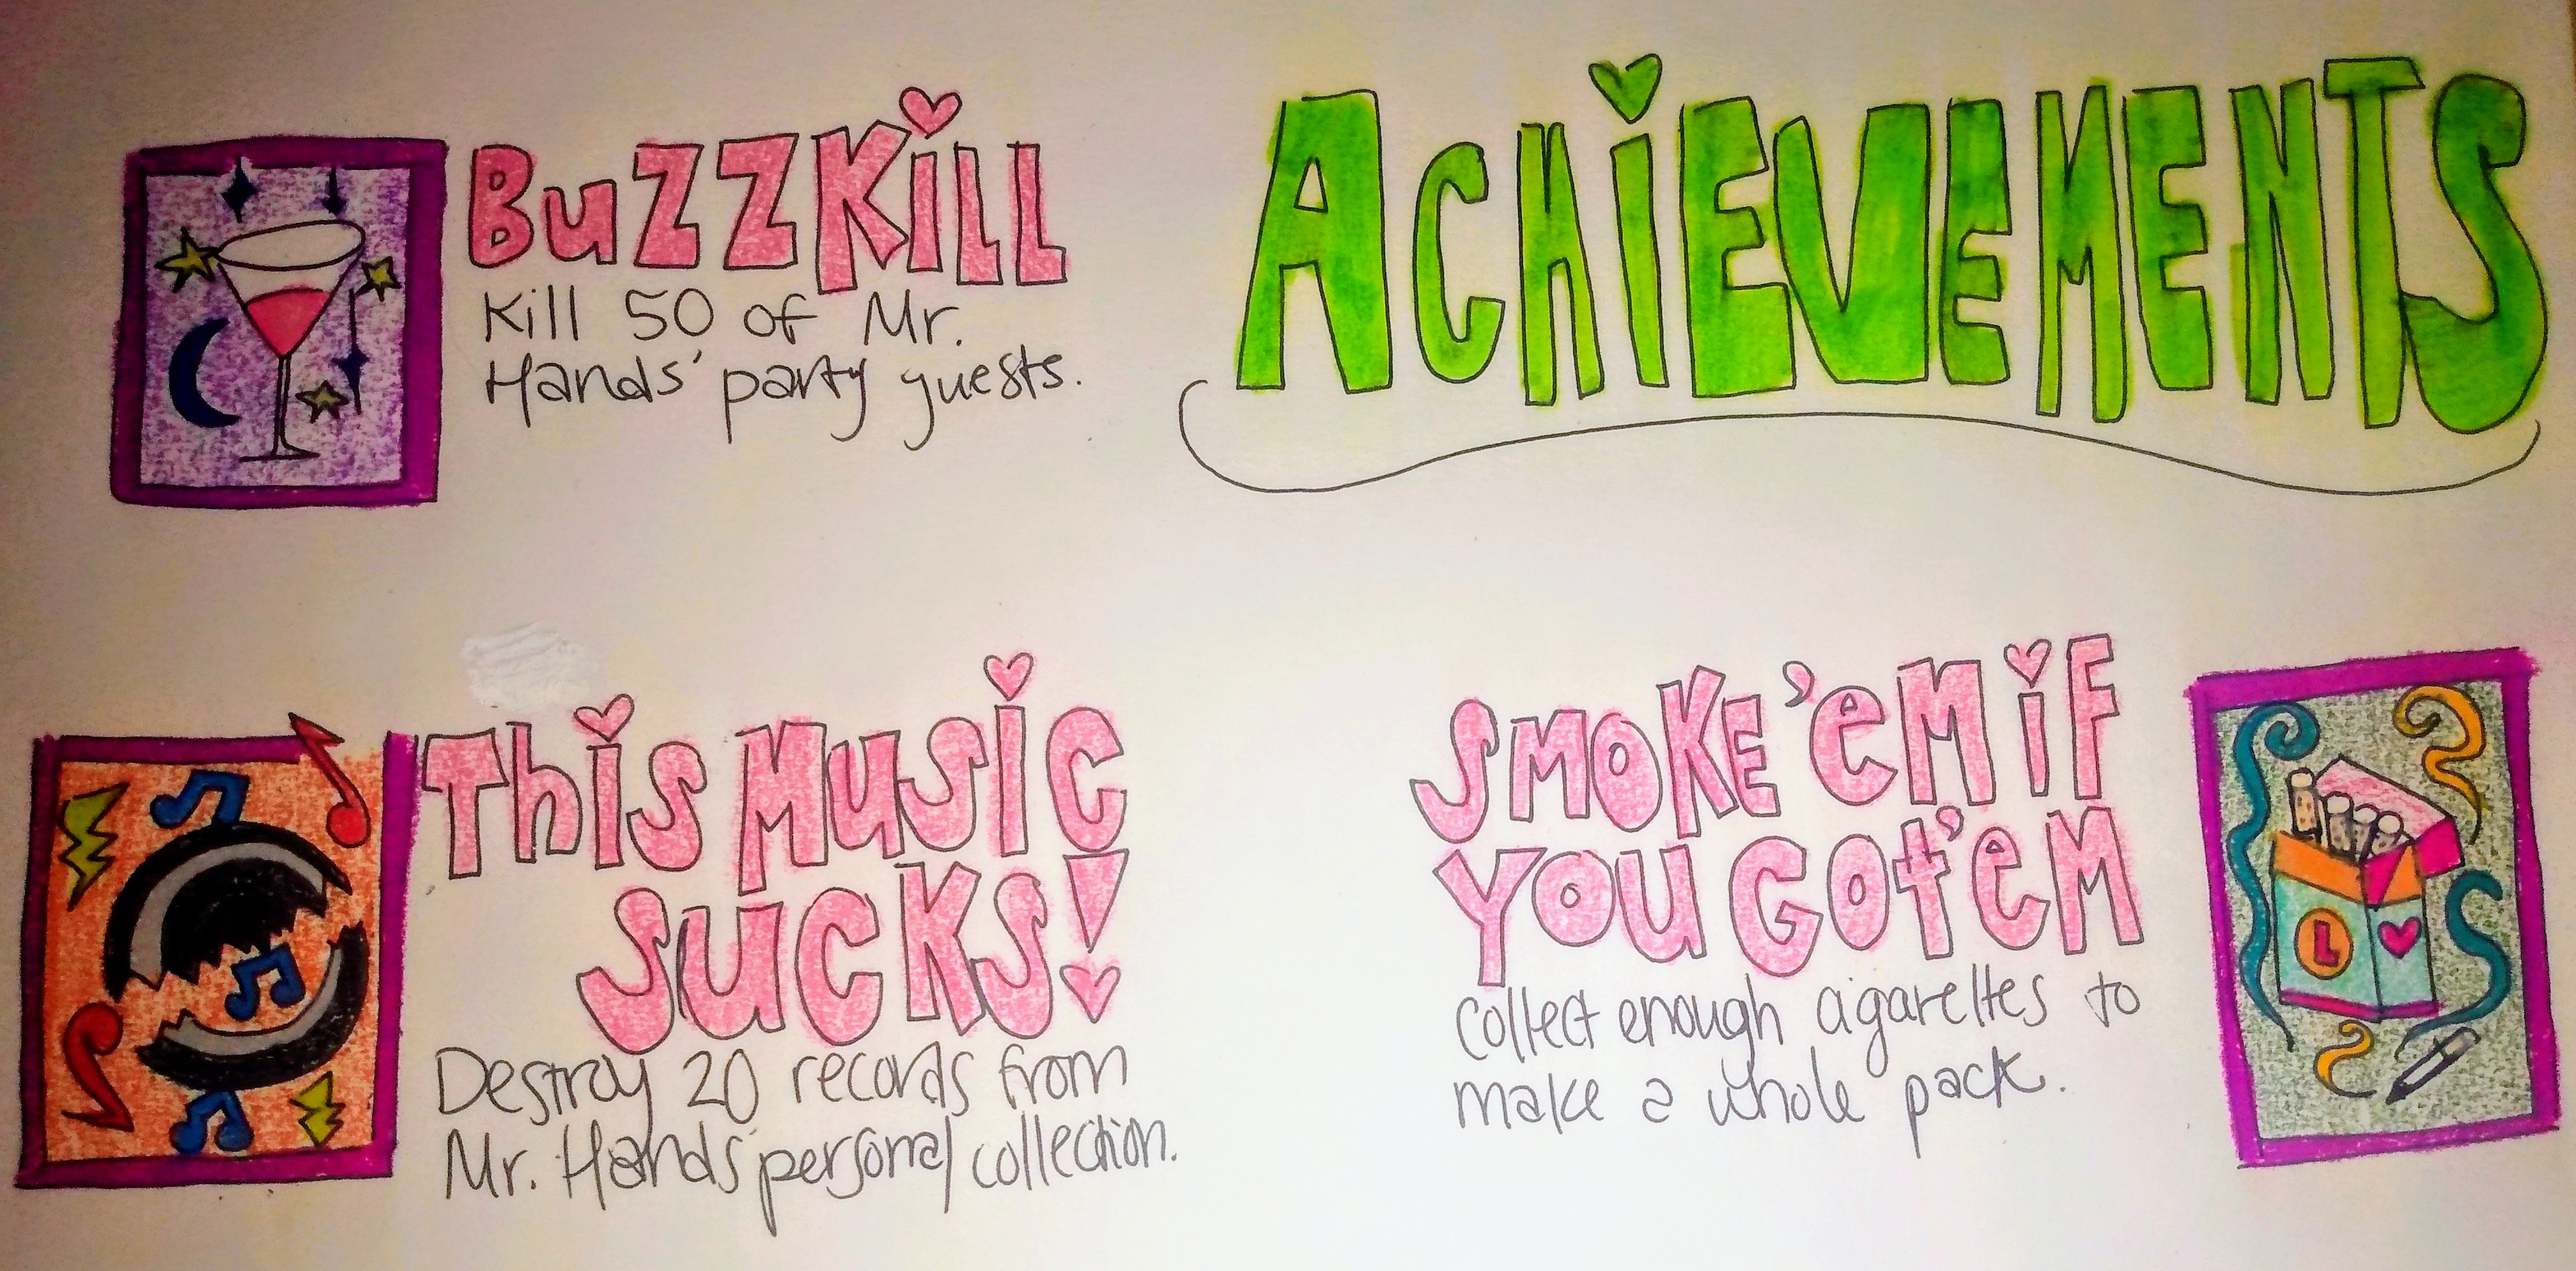 ACHiEVEMENTS
BuZZKiLL
Kill 50 of Mr.
Hands' party guests.
This Music
SUCKS!
Destroy 20 records from
Mr. Hands' personal collection.
SMOKE 'eM iF
YOU GOt 'eM
Collect enough cigarettes to
make a whole pack.
L